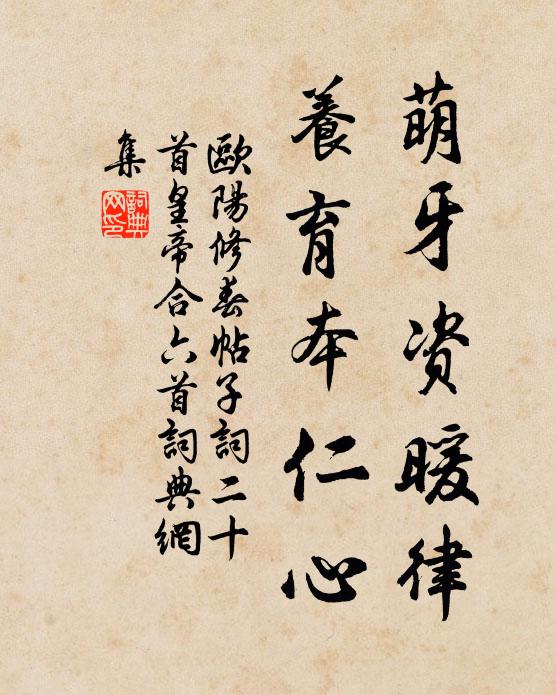 萌牙资暖律
養育本仁心
歐陽修春帖子詞二十
首皇帝合六首詞典網
集
詞典
网印